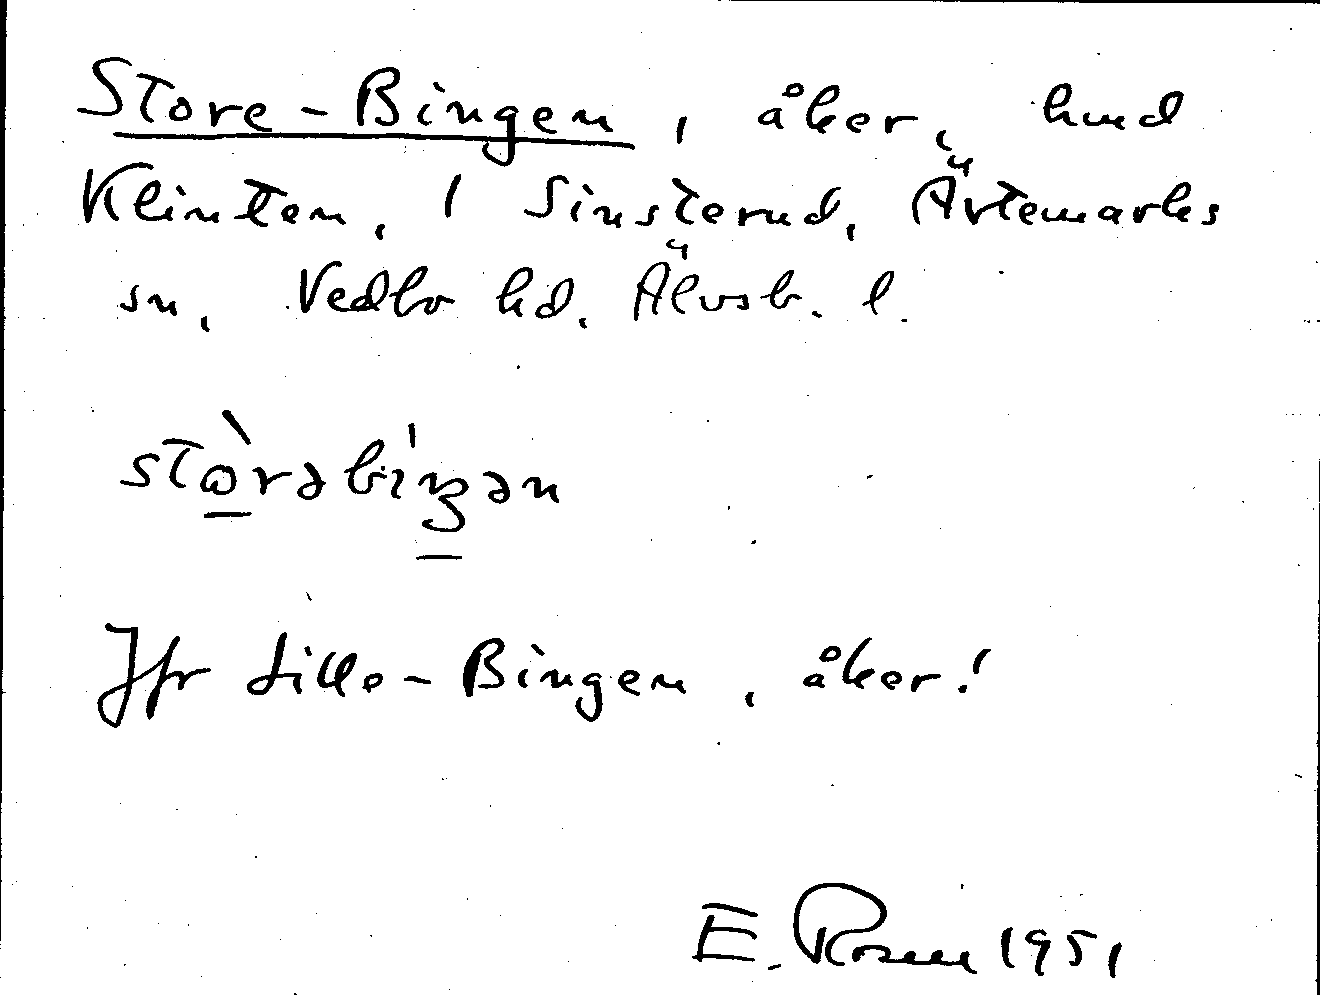 Store-Bingen, åker, hmd
Klinten, 1 Sinsterud, Ärtemarks
sn, Vedbo hd. Älvsb. l.
stòrəbíŋən
Jfr Lille-Bingen, åker!
E. Rosen 1951